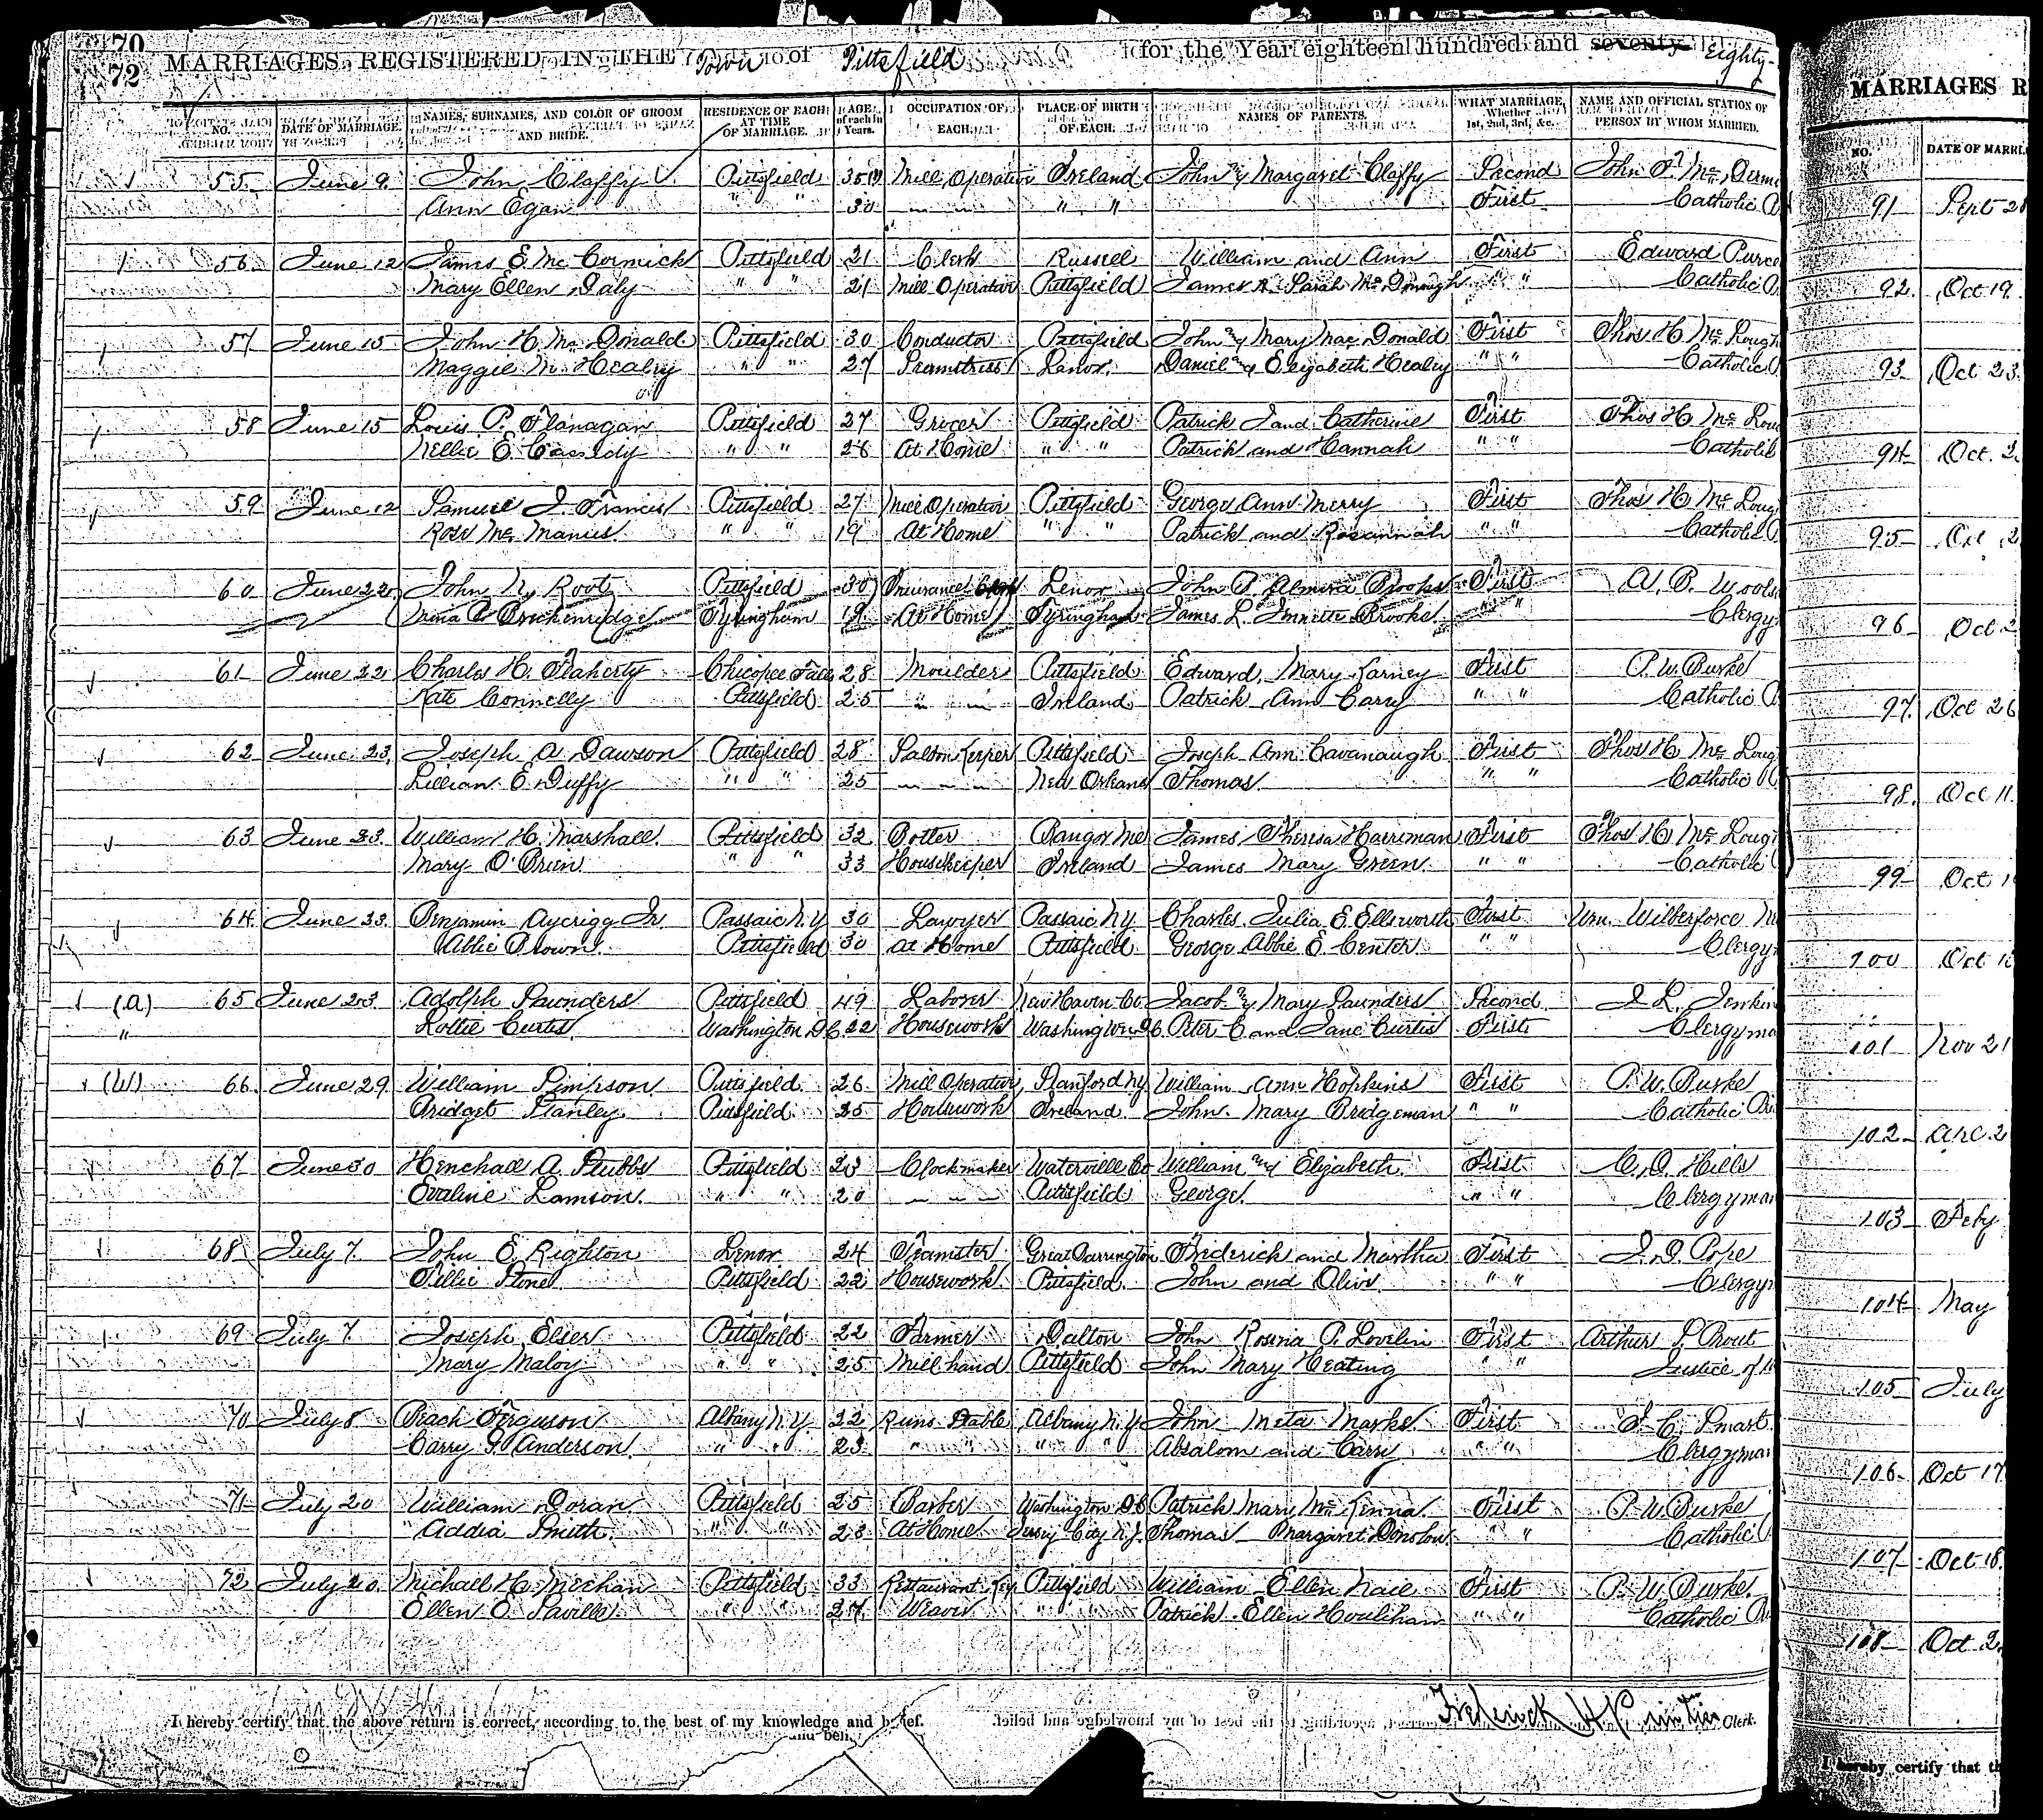 70
72 MARRIAGES REGISTERED IN THE Town of Pittsfield for the Year eighteen hundred and seventy Eighty-
NO. DATE OF MARRIAGE. NAMES, SURNAMES, AND COLOR OF GROOM AND BRIDE. RESIDENCE OF EACH AT TIME OF MARRIAGE. AGE of each in Years. OCCUPATION OF EACH. PLACE OF BIRTH OF EACH. NAMES OF PARENTS. WHAT MARRIAGE, Whether 1st, 2nd, 3rd, &c. NAME AND OFFICIAL STATION OF PERSON BY WHOM MARRIED.
55 June 9. John Claffy Pittsfield 35 Mill Operative Ireland John & Margaret Claffy Second John F. Mc Derm
Ann Egan " " 30 " " " " First Catholic
56 June 12 James E. Mc Cormick Pittsfield 21 Clerk Russell William and Ann First Edward Purce
Mary Ellen Daly " " 21 Mill Operative Pittsfield James & Sarah Mc Donough " " Catholic
57 June 15 John H. Mc Donald Pittsfield 30 Conductor Pittsfield John & Mary Mac Donald First Thos H Mc Lough
Maggie M. Healey " " 27 Seamstress Lenox Daniel & Elizabeth Healey " " Catholic
58 June 15 Louis P. Flanagan Pittsfield 27 Grocer Pittsfield Patrick and Catherine First Thos H Mc Lou
Nellie E. Cassidy " " 26 At Home " " Patrick and Hannah " " Catholic
59 June 12 Samuel J. Francis Pittsfield 27 Mill Operative Pittsfield George Ann Merry First Thos H Mc Loug
Rose Mc Manus " " 19 At Home " " Patrick and Rosannah " " Catholic
60 June 22 John N. Root Pittsfield 30 Insurance Lenox John B. Almira Brooks First A. B. Wools
C. Breckenridge Tyringham 19 At Home Tyringham James L. Brooks " " Clergy
61 June 22 Charles H. Flaherty Chicopee Falls 28 Moulder Pittsfield Edward, Mary Karney First P. W. Burke
Kate Connelly Pittsfield 25 " " Ireland Patrick Ann Carry " " Catholic
62 June 23, Joseph A Dawson Pittsfield 28 Saloon Keeper Pittsfield Joseph Ann Cavanaugh First Thos H Mc Loug
Lillian E. Duffy " " 25 " " New Orleans Thomas " " Catholic
63 June 23. William H. Marshall Pittsfield 32 Potter Bangor Me James Theresa Harriman First Thos H Mc Loug
Mary O'Brien " " 33 Housekeeper Ireland James Mary Green " " Catholic
64 June 23. Benjamin Aycrigg Jr. Passaic N.Y 30 Lawyer Passaic N.Y. Charles, Julia E. Ellsworth First Wm. Wilberforce
Abbie Brown Pittsfield 30 At Home Pittsfield George Abbie E. Center " " Clergy
(a) 65 June 23. Adolph Saunders Pittsfield 49 Laborer New Haven Ct Jacob & Mary Saunders Second J L. Jenkin
" Lottie Curtis Washington D.C. 22 Housework Washington D.C. Peter C and Jane Curtis First Clergyma
(W) 66. June 29. William Simpson Pittsfield 26 Mill Operative Stanford N.Y William Ann Hopkins First P. W. Burke
Bridget Stanley Pittsfield 25 Housework Ireland. John Mary Bridgeman " " Catholic
67 June 30 Henchall A. Stubbs Pittsfield 23 Clockmaker Waterville Ct William and Elizabeth First C. O. Hills
Evaline Lamson " " 20 " " Pittsfield George. " " Clergyman
68 July 7. John E. Righton Lenox 24 Teamster Great Barrington Frederick and Martha First J. D. Pope
Tillie Stone Pittsfield 22 Housework Pittsfield John and Olive " " Clergy
69 July 7 Joseph Elser Pittsfield 22 Farmer Dalton John Rosina P. Lovelin First Arthur S. Prout
Mary Maloy " " 25 Mill hand Pittsfield John Mary Keating " " Justice of
70 July 8 Beach Ferguson Albany N.Y. 22 Runs Stable Albany N.Y John Meta Marks First S. C. Smart.
Carry G. Anderson " " 23 " " " " Absalom and Carry " " Clergyman
71 July 20 William Doran Pittsfield 25 Barber Washington D.C Patrick Mary Mc Kenna. First P. W. Burke
Addia Smith " " 23 At Home Jersey City N.J. Thomas Margaret Donolow " " Catholic
72 July 20. Michael H. Meehan Pittsfield 33 Restaurant Kep Pittsfield William Ellen Nail First P. W. Burke.
Ellen E. Saville " " 27 Weaver " " Patrick Ellen Houlihan " " Catholic
I hereby certify that the above return is correct, according to the best of my knowledge and belief.
Frederick H Printiss Clerk.
MARRIAGES R
NO. DATE OF MARRI
91 Sept 28
92 Oct 19.
93 Oct 23.
94 Oct. 2
95 Oct 2
96 Oct 2
97 Oct 26
98 Oct 11.
99 Oct 1
100 Oct 1
101 Nov 21
102 Dec. 2
103 Feby
104 May
105 July
106 Oct 17
107 Oct 18.
108 Oct 2
I hereby certify that th